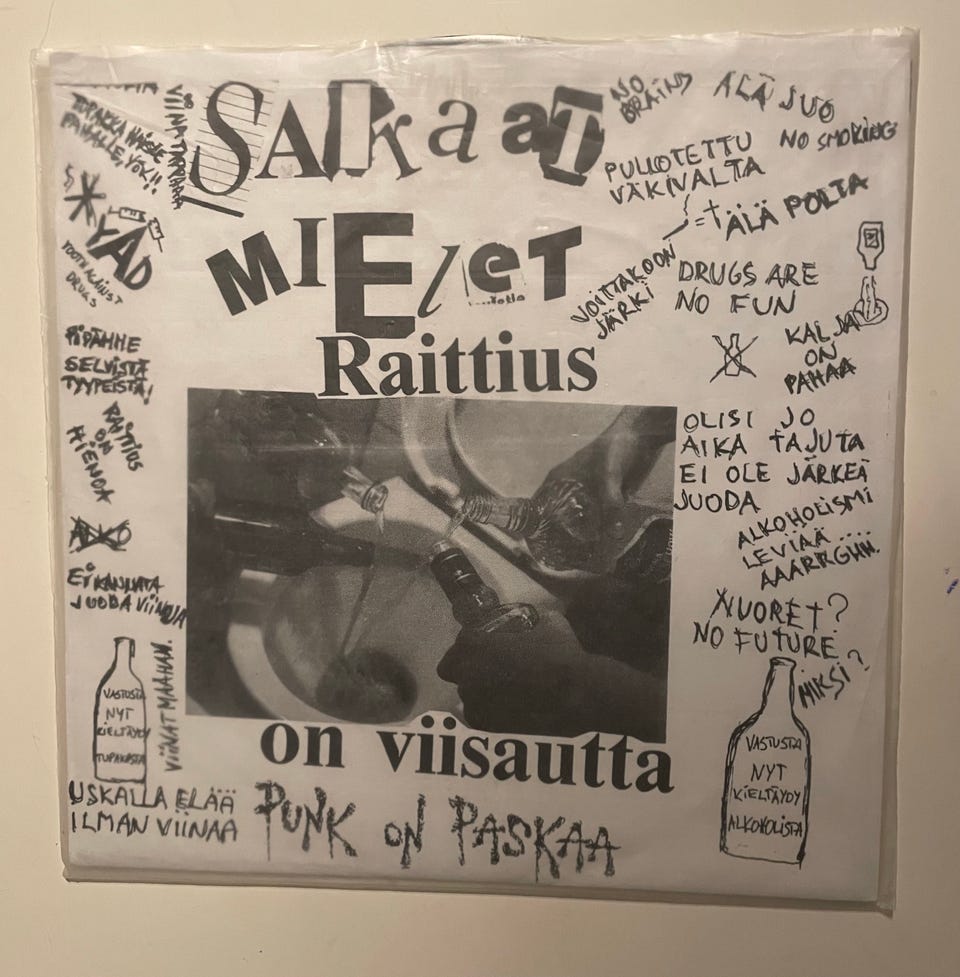 SAIRaaT
MIElet
Raittius
on viisautta
TUPAKKA HAISEE
PAHALLE, Y�ök!!
NO
BRAIND
ÄLÄ JUO
NO SMOKING
PULLOTETTU
VÄKIVALTA
=†
ÄLÄ POLTA
$
YAD
YOUTH AGAINST
DRUGS
VOITTAKOON
JÄRKI
DRUGS ARE
NO FUN
KALJA
ON
PAHAA
PIPÄHHE
SELVISTÄ
TYYPEISTÄ!
RAITTIUS
ON
HIENOA
OLISI JO
AIKA TAJUTA
EI OLE JÄRKEÄ
JUODA
ALKOHOLISMI
LEVIÄÄ....
AAARRGHH.
ALKO
Ei KANNATA
JUODA VIINOJA
NUORET?
NO FUTURE
MIKSI?
VASTUSTA
NYT
KIELTÄYDY
TUPAKASTA
VIINAT MAAHAN.
VASTUSTA
NYT
KIELTÄYDY
ALKOHOLISTA
USKALLA ELÄÄ
ILMAN VIINAA
PUNK ON PASKAA